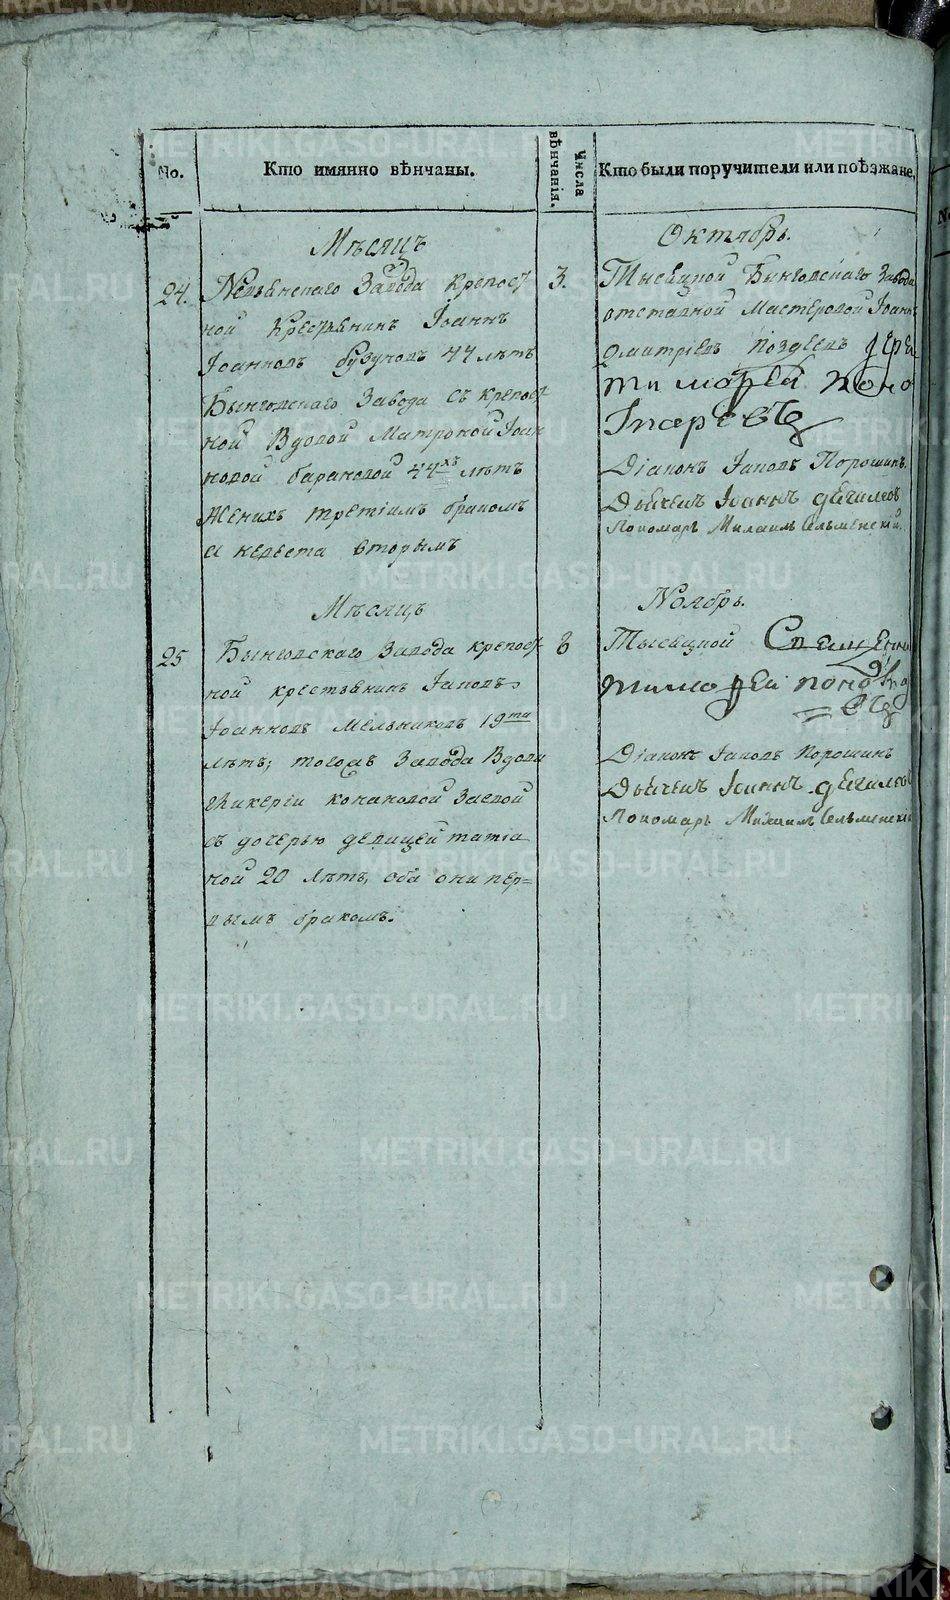 No.
Кто имянно вѣнчаны.
Числа вѣнчанія.
Кто были поручители или поѣзжане,
Мѣсяцъ
Октябрь.
24.
Невьянскаго Завода крепост
ной Крестьянинъ Іоаннъ
Іоанновъ бузуновъ 44 лѣтъ
Бынговскаго Завода съ крепост
ной Вдовой Матроной Іоан
новой барановой 44хъ лѣтъ
Женихъ третіимъ бракомъ
а невеста вторымъ
3.
Тысецкой Бынговскаго Завода
отставной Мастеровой Іоаннъ
Дмитріевъ поздеевъ Іерей
тимофей поно
маревъ
Діаконъ Іаковъ Порошинъ.
Дьячекъ Іоаннъ
Пономарь Михаилъ Сельменскій.
Мѣсяцъ
Ноябрь.
25
Бынговскаго Завода крепост
ной крестьянинъ Іаковъ
Іоанновъ Мельниковъ 19ти
лѣтъ; тогожъ Завода Вдовы
Гликеріи конановой Заевой
съ дочерью девицей татіа
ной 20 лѣтъ, оба они пер=
вымъ бракомъ.
6
Тысецкой Священни
тимофей поно
=въ
Діаконъ Іаковъ Порошинъ
Дьячекъ Іоаннъ
Пономарь Михаилъ Сельменскій
METRIKI.GASO-URAL.RU